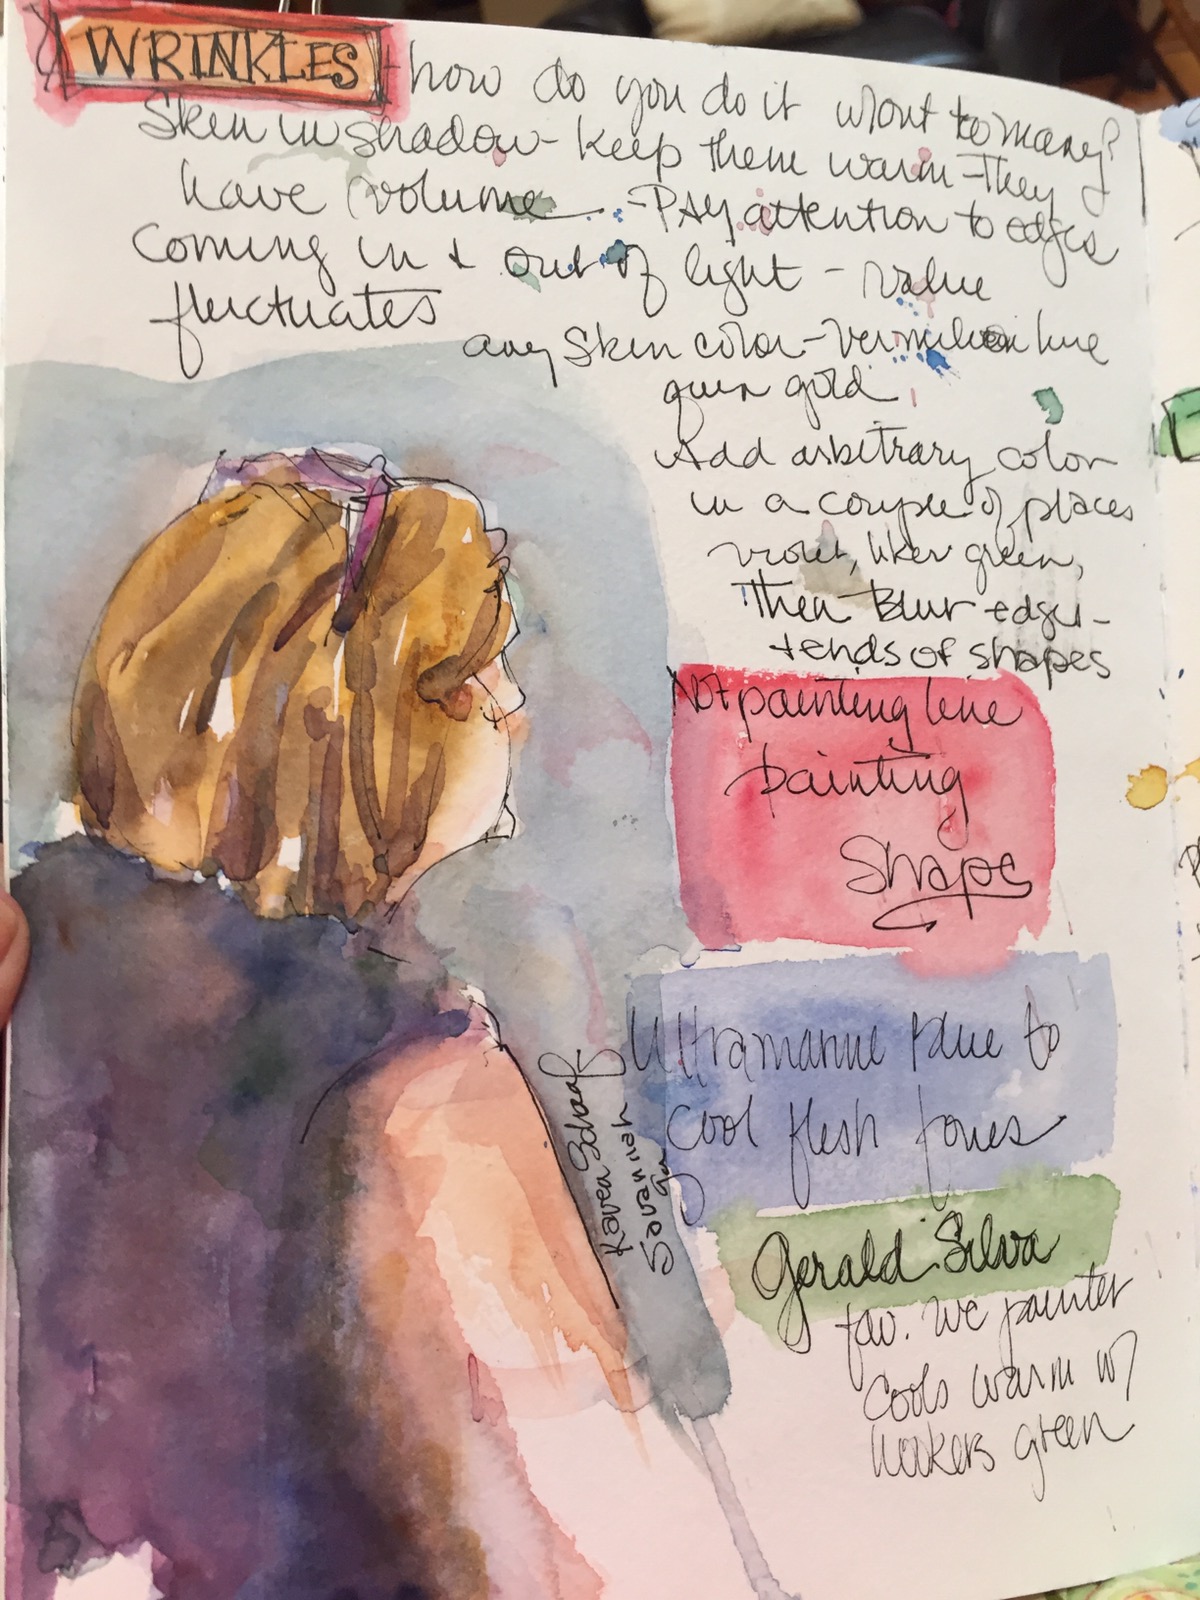 WRINKLES how do you do it w/out to many?
Skin in shadow - keep them warm - They
have volume - PAY attention to edges
coming in + out of light - value
fluctuates
any Skin color - Vermilion hue
quin gold
Add arbitrary color
in a couple of places
violet, green,
Then Blur edges -
+ ends of shapes
Not painting line
painting
Shape
Ultramarine blue to
cool flesh tones
Karen Schaaf
Savannah
Ga
Gerald Silva
fav. wc painter
cools warm w/
hookers green